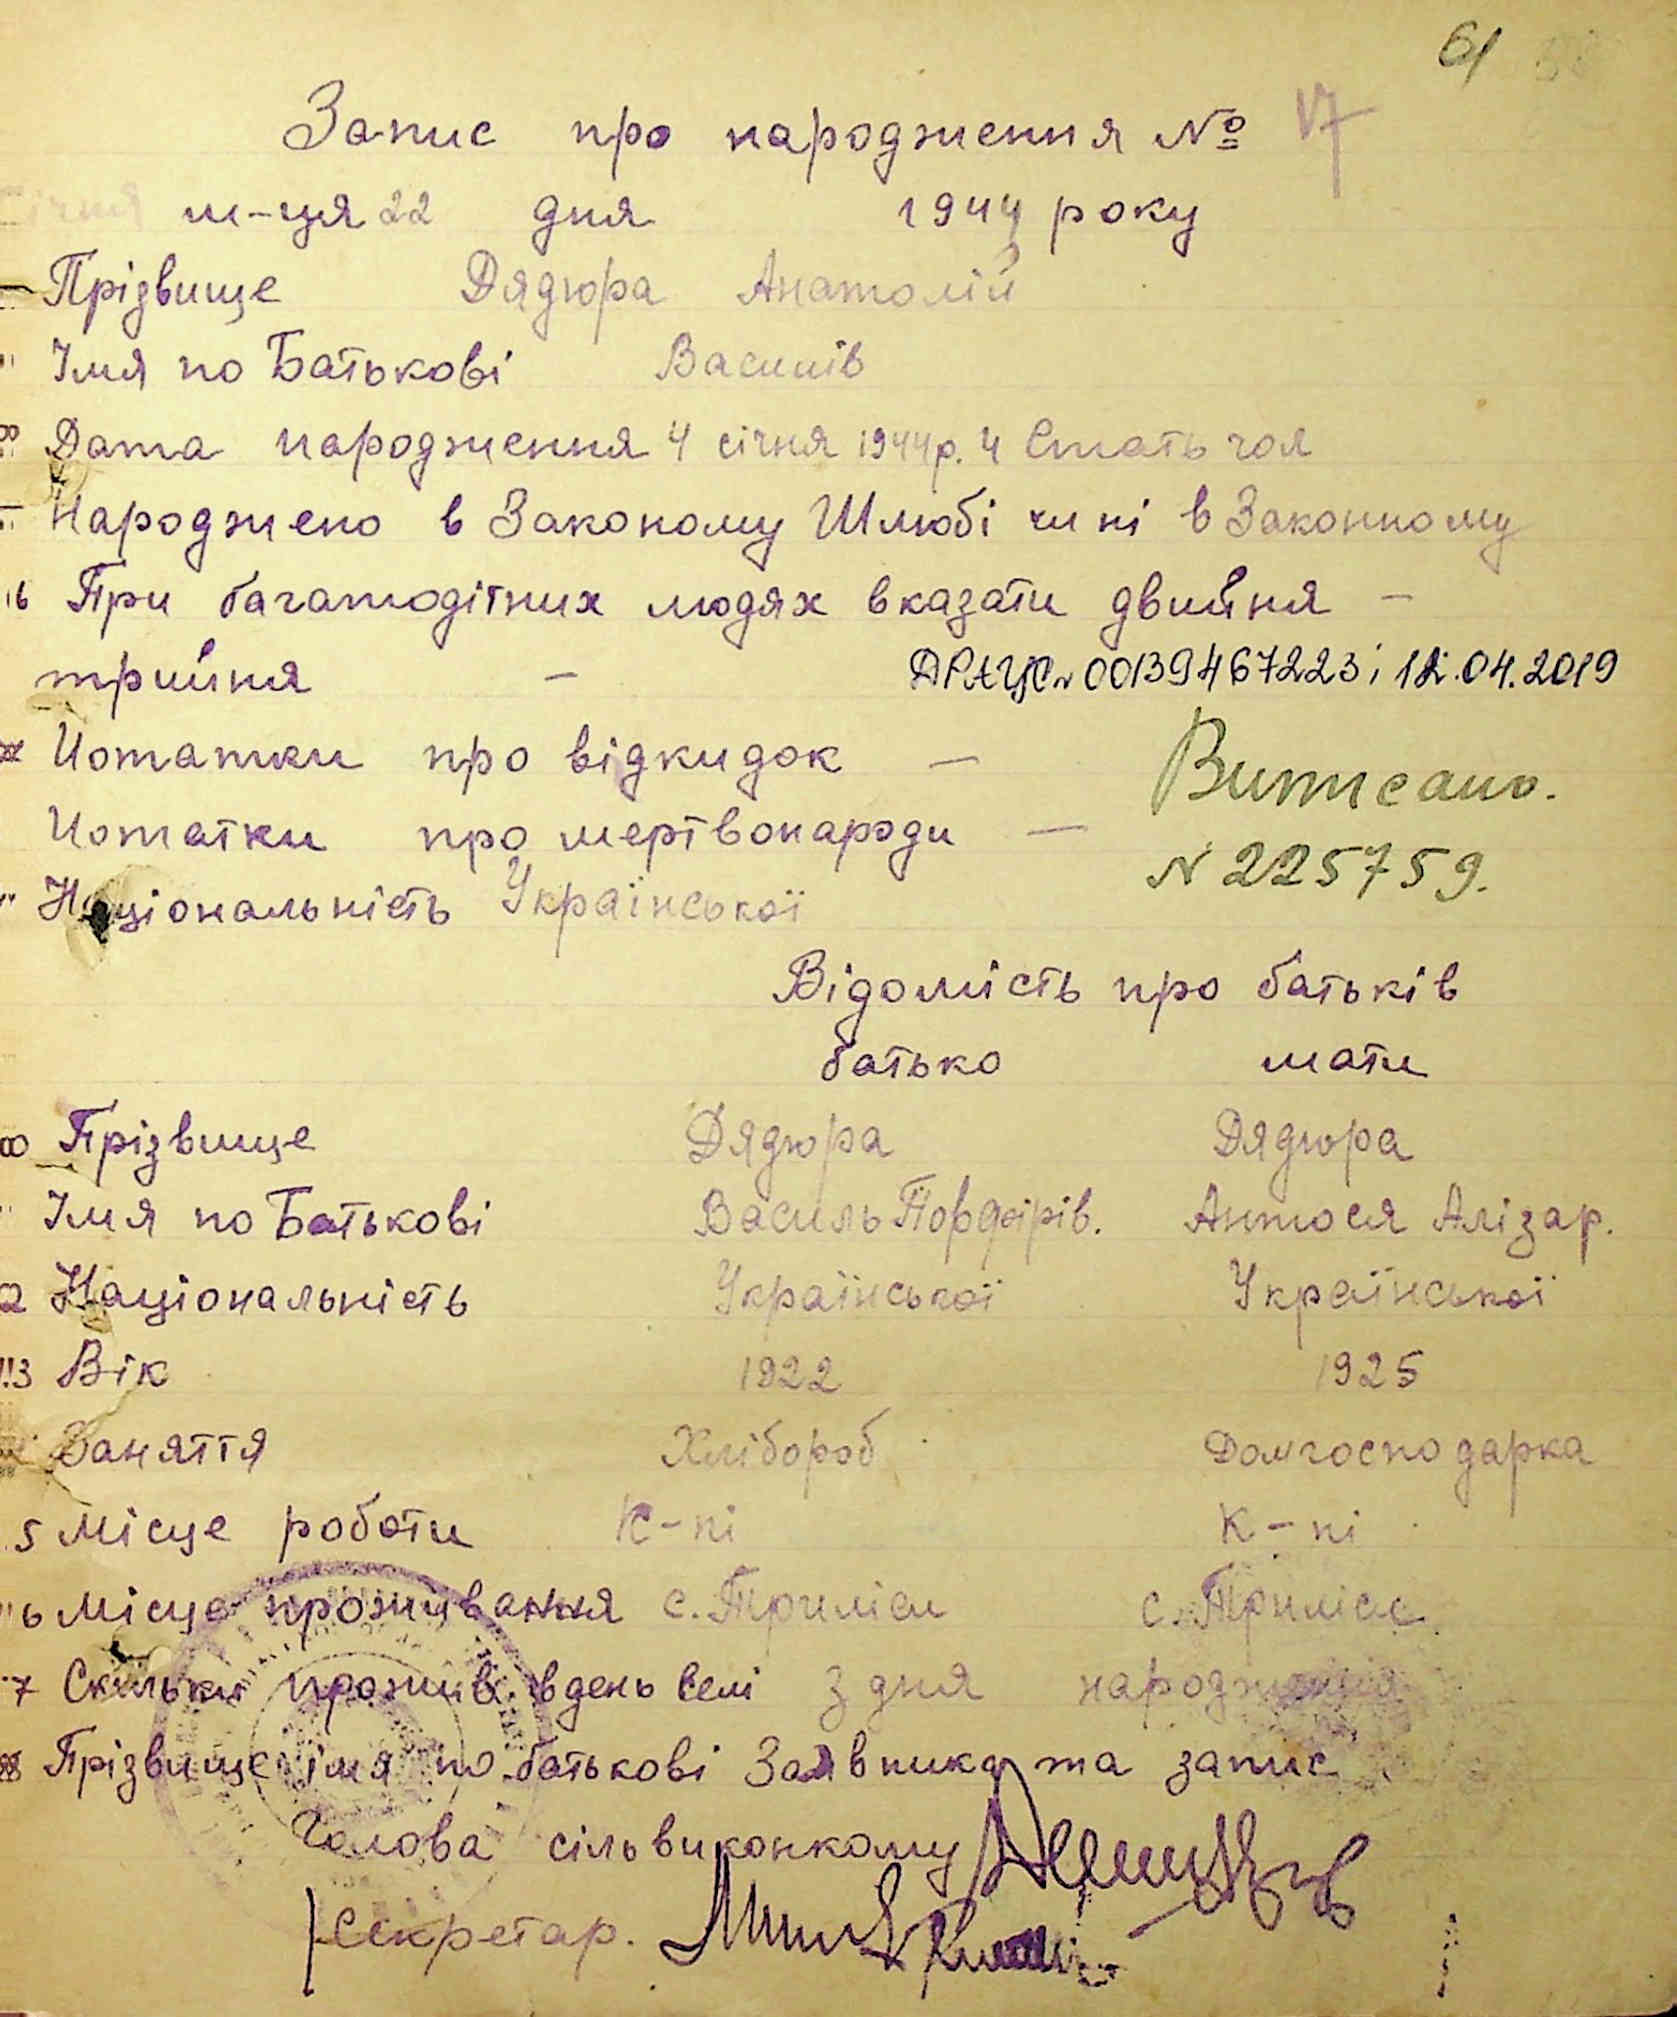 61
Запис про народження № 17
Січня м-ця 22 дня 1944 року
Прізвище Дядюра Анатолій
Імя по Батькові Василів
Дата народження 4 січня 1944р. 4 Стать чол
Народжено в Законому Шлюбі чи ні в Законному
6 При багатодітних людях вказати двийня –
трийня – ДРАЦСу 00139467223; 12.04.2019
Нотатки про відкидок –
Виписано.
Нотатки про мертвонароди –
N 225759.
Національність Української
Відомість про батьків
батько мати
Прізвище Дядюра Дядюра
Імя по Батькові Василь Порфирів. Антося Алізар.
2 Національність Української Української
3 Вік 1922 1925
Заняття Хлібороб Домгосподарка
5 Місце роботи К-пі К-пі
6 Місце проживання с. Триліси с. Триліси
7 Скільки прожив. вдень велі З дня народження
Прізвище імя по батькові Заявника та запис
Голова сільвиконкому
Секретар.